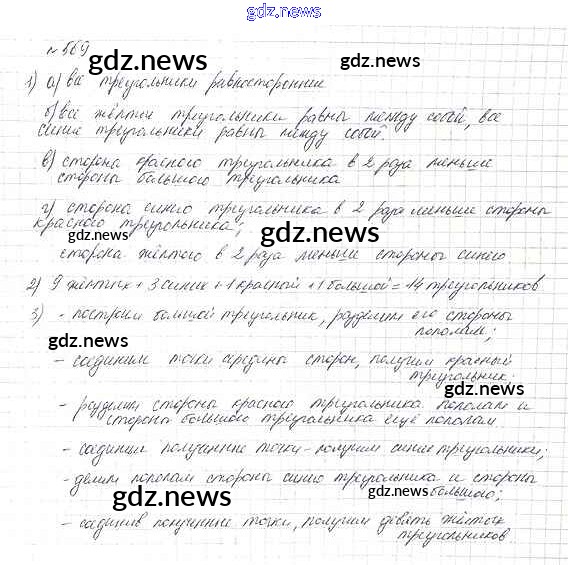 gdz.news
№569
gdz.news
1) а) все треугольники равносторонние
б) все жёлтые триугольники равны между собой, все
синие триугольники равны между собой.
в) сторона красного триугольника в 2 раза меньше
стороны большого триугольника
г) сторона синего триугольника в 2 раза меньше стороны
красного триугольника;
gdz.news
gdz.news
сторона жёлтого в 2 раза меньше стороны синего
2) 9 жёлтых + 3 синих + 1 красный + 1 большой = 14 триугольников
3) - построим большой триугольник, разделим его стороны
пополам;
gdz.news
gdz.news
- соединим точки середины сторон, получим красный
триугольник;
- разделим стороны красного триугольника пополам и
стороны большого триугольника ещё пополам.
- соединим полученные точки - получим синие триугольники;
- делим пополам стороны синего триугольника и стороны
большого;
gdz.news
gdz.news
- соединив полученные точки, получим девять жёлтых
триугольников
gdz.news